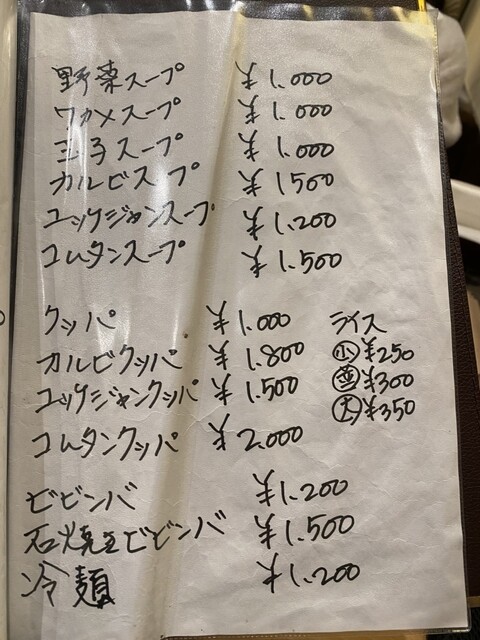 野菜スープ ¥1.000
ワカメスープ ¥1.000
玉子スープ ¥1.000
カルビスープ ¥1500
ユッケジャンスープ ¥1.200
コムタンスープ ¥1.500
クッパ ¥1.000
カルビクッパ ¥1.800
ユッケジャンクッパ ¥1.500
コムタンクッパ ¥2.000
ライス
小 ¥250
普 ¥300
大 ¥350
ビビンバ ¥1.200
石焼ビビンバ ¥1.500
冷麺 ¥1.200